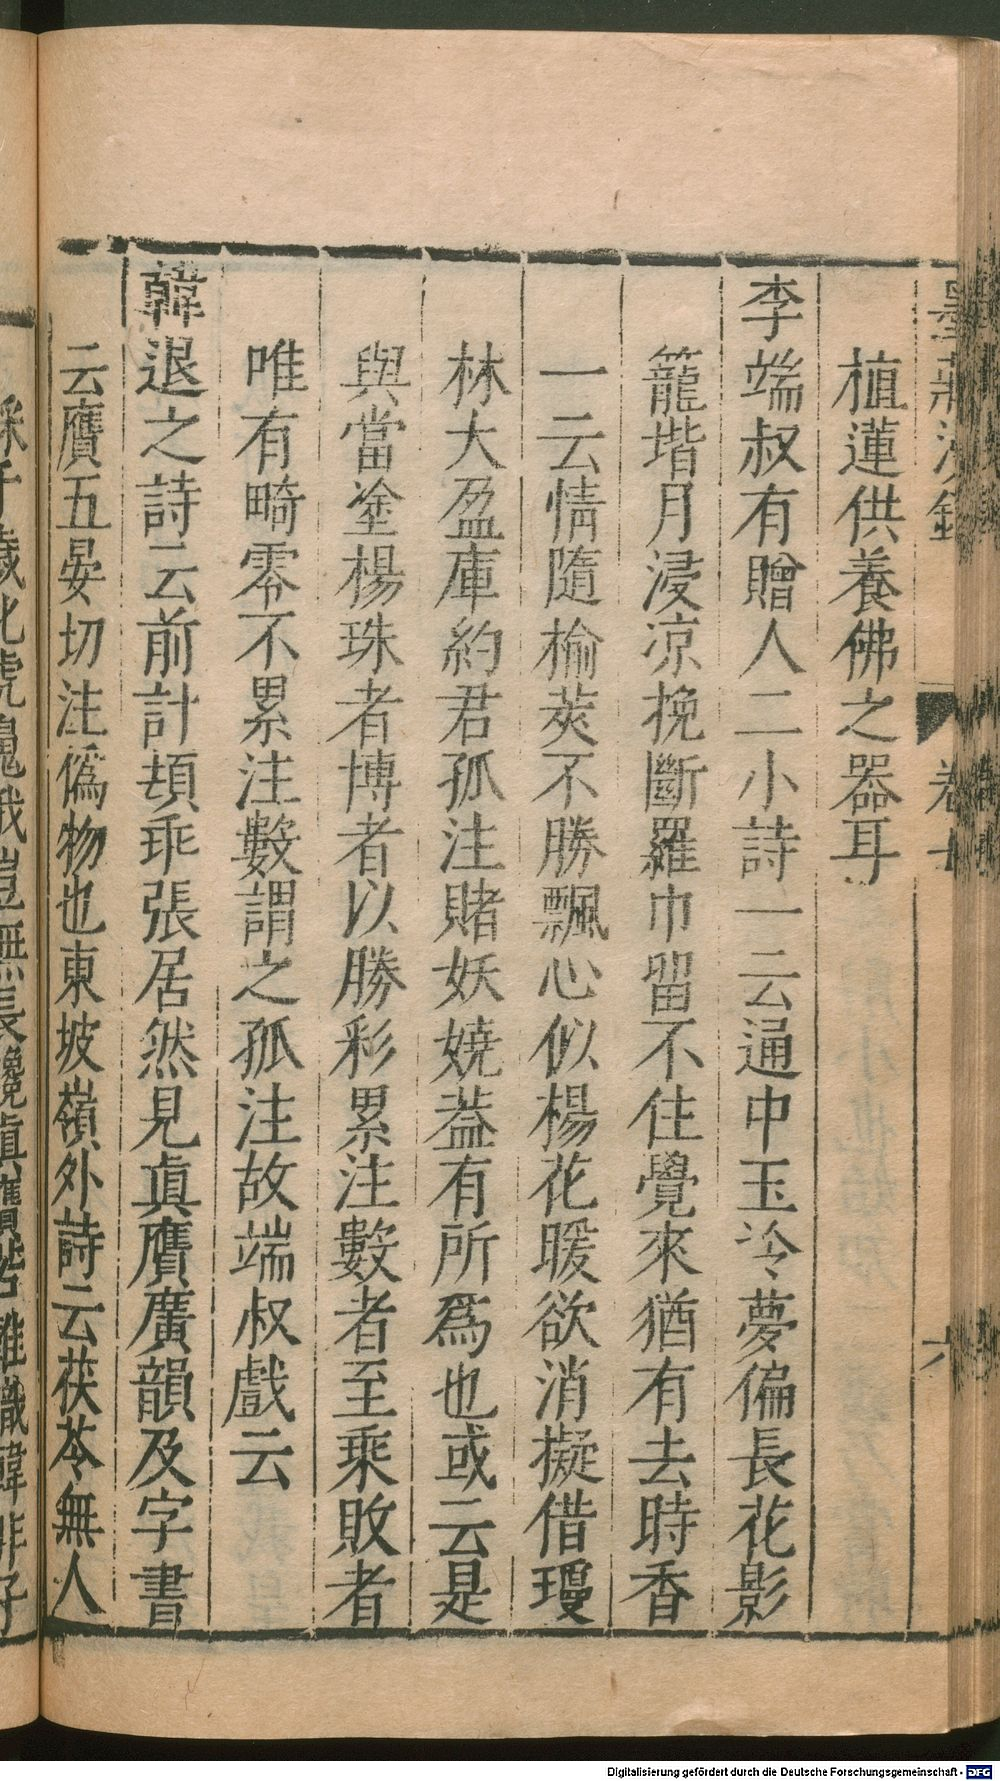 墨莊漫錄 卷十 六
植蓮供養佛之器耳
李端叔有贈人二小詩一云通中玉冷夢偏長花影
籠堦月浸凉挽斷羅巾留不住覺來猶有去時香
一云情隨榆莢不勝飄心似楊花暖欲消擬借瓊
林大盈庫約君孤注賭妖嬈葢有所爲也或云是
與當塗楊珠者博者以勝彩累注數者至乘敗者
唯有畸零不累注數謂之孤注故端叔戲云
韓退之詩云前計頓乖張居然見眞贗廣韻及字書
云贗五晏切注僞物也東坡嶺外詩云茯苓無人
Digitalisierung gefördert durch die Deutsche Forschungsgemeinschaft - DFG